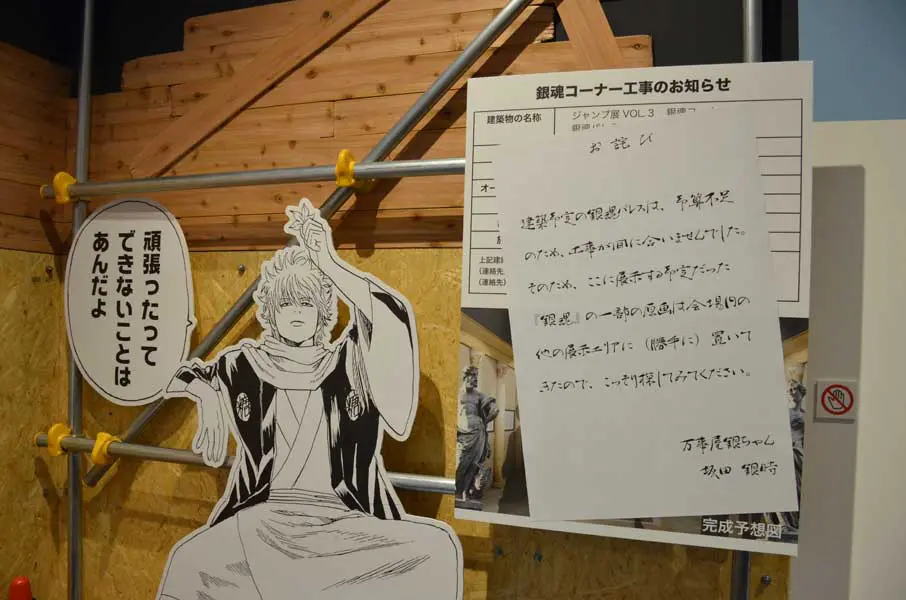 頑張ったって
できないことは
あんだよ
銀魂コーナー工事のお知らせ
建築物の名称
ジャンプ展VOL.3
銀魂
お詫び
建築予定の銀魂パレスは、予算不足
のため、工事が間に合いませんでした。
そのため、ここに展示する予定だった
『銀魂』の一部の原画は会場内の
他の展示エリアに(勝手に)置いて
きたので、こっそり探してみてください。
万事屋銀ちゃん
坂田 銀時
オー
上記建
(連絡先
(連絡先)
完成予想図